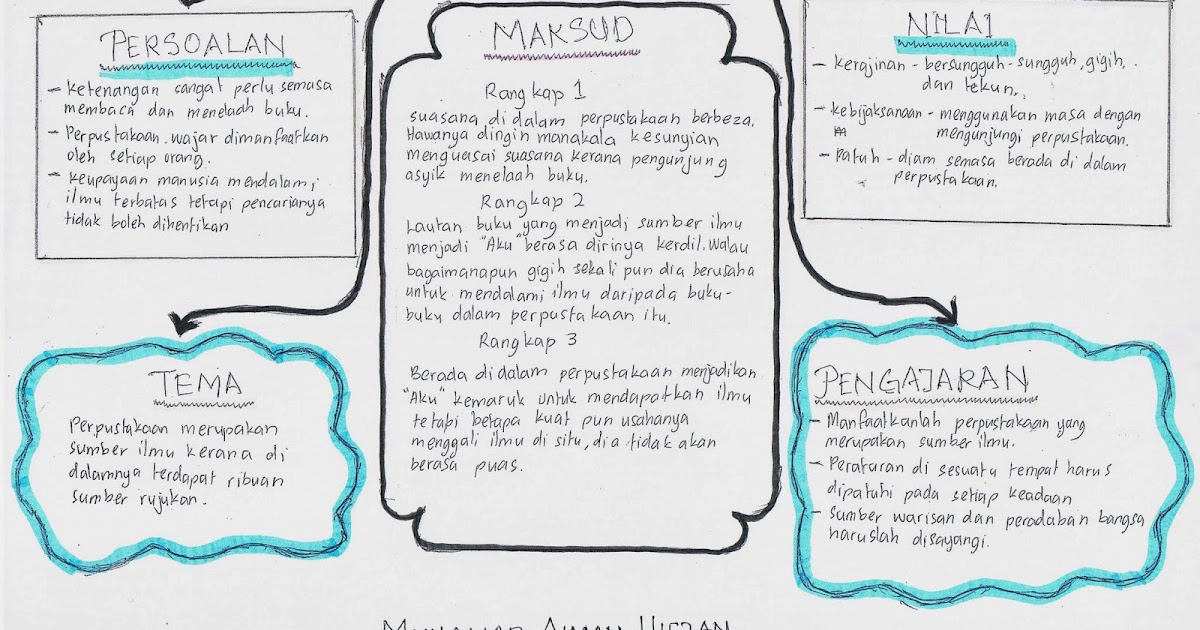 PERSOALAN
- Ketenangan sangat perlu semasa
membaca dan menelaah buku.
- Perpustakaan wajar dimanfaatkan
oleh setiap orang.
- Keupayaan manusia mendalami
ilmu terbatas tetapi pencarianya
tidak boleh dihentikan
MAKSUD
Rangkap 1
Suasana di dalam perpustakaan berbeza.
Hawanya dingin manakala kesunyian
menguasai suasana kerana pengunjung
asyik menelaah buku.
Rangkap 2
Lautan buku yang menjadi sumber ilmu
menjadi "Aku" berasa dirinya kerdil. Walau
bagaimanapun gigih sekali pun dia berusaha
untuk mendalami ilmu daripada buku-
buku dalam perpustakaan itu.
Rangkap 3
Berada di dalam perpustakaan menjadikan
"Aku" kemaruk untuk mendapatkan ilmu
tetapi betapa kuat pun usahanya
menggali ilmu di situ, dia tidak akan
berasa puas.
NILAI
- Kerajinan - bersungguh-sungguh, gigih,
dan tekun.
- Kebijaksanaan - menggunakan masa dengan
mengunjungi perpustakaan.
- Patuh - diam semasa berada di dalam
perpustakaan.
TEMA
Perpustakaan merupakan
sumber ilmu kerana di
dalamnya terdapat ribuan
sumber rujukan.
PENGAJARAN
- Manfaatkanlah perpustakaan yang
merupakan sumber ilmu.
- Peraturan di sesuatu tempat harus
dipatuhi pada setiap keadaan
- Sumber warisan dan peradaban bangsa
haruslah disayangi.